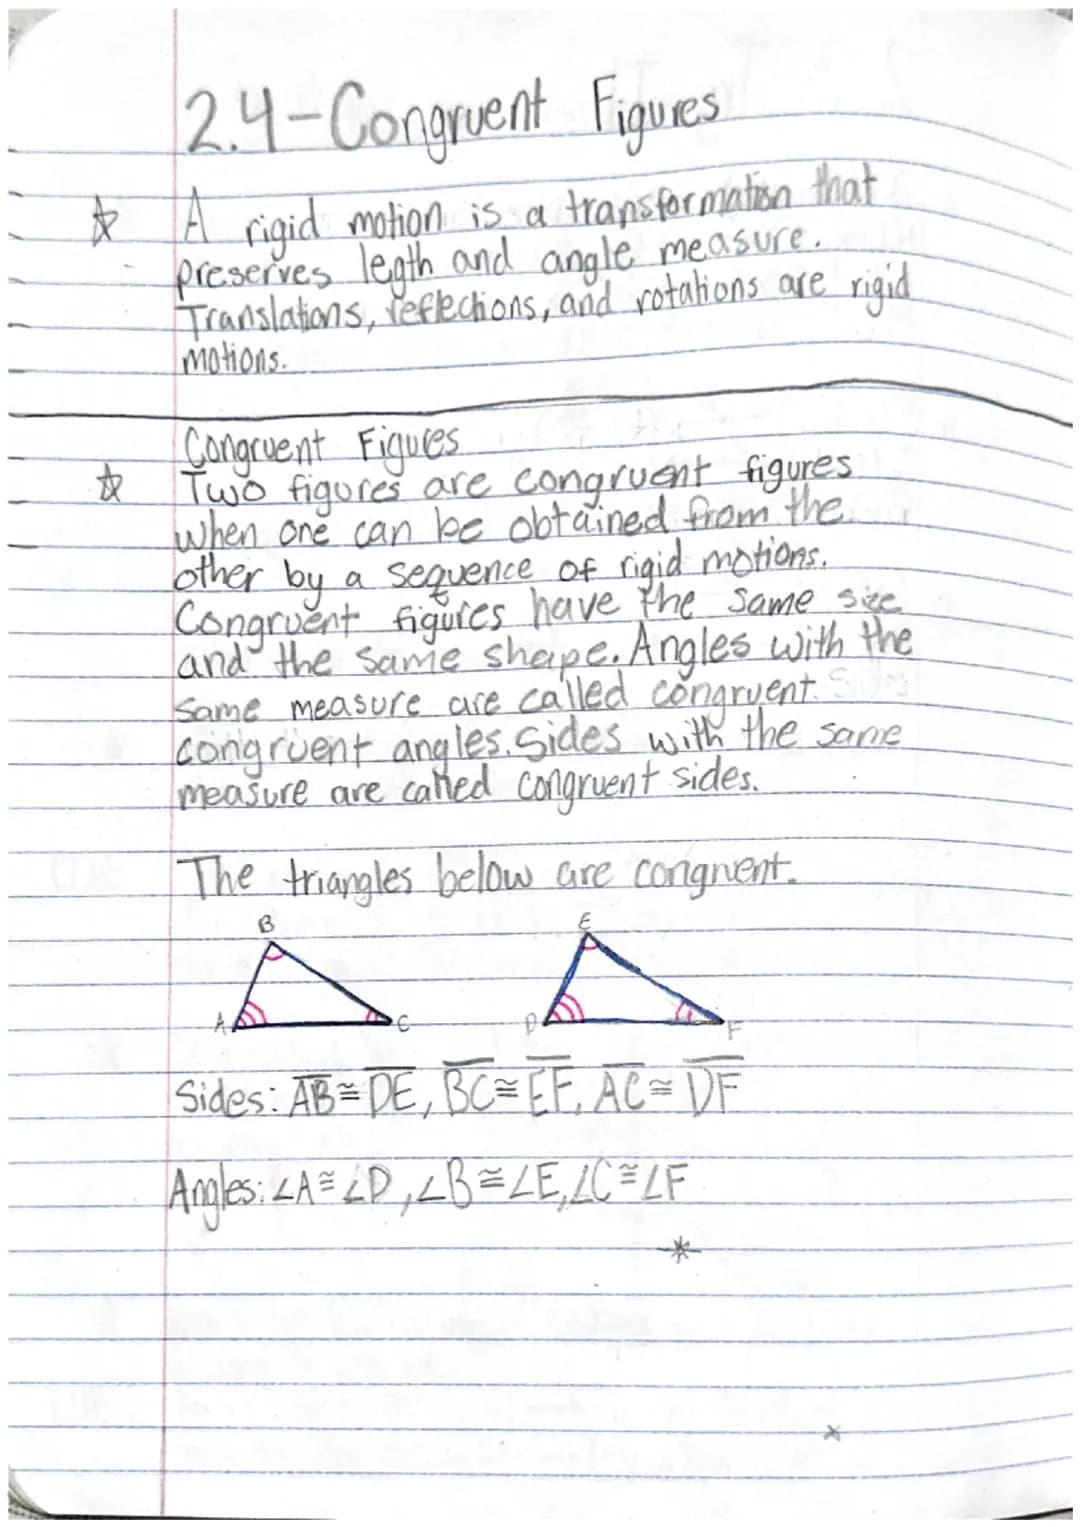 2.4-Congruent Figures
☆ A rigid motion is a transformation that
preserves legth and angle measure.
Translations, reflections, and rotations are rigid
motions.
Congruent Figures
☆ Two figures are congruent figures
when one can be obtained from the
other by a sequence of rigid motions.
Congruent figures have the same size
and the same shape. Angles with the
same measure are called congruent.
congruent angles. Sides with the same
measure are called congruent sides.
The triangles below are congruent.
B E
A C D F
Sides: A̅B̅ ≅ D̅E̅, B̅C̅ ≅ E̅F̅, A̅C̅ ≅ D̅F̅
Angles: ∠A ≅ ∠D, ∠B ≅ ∠E, ∠C ≅ ∠F